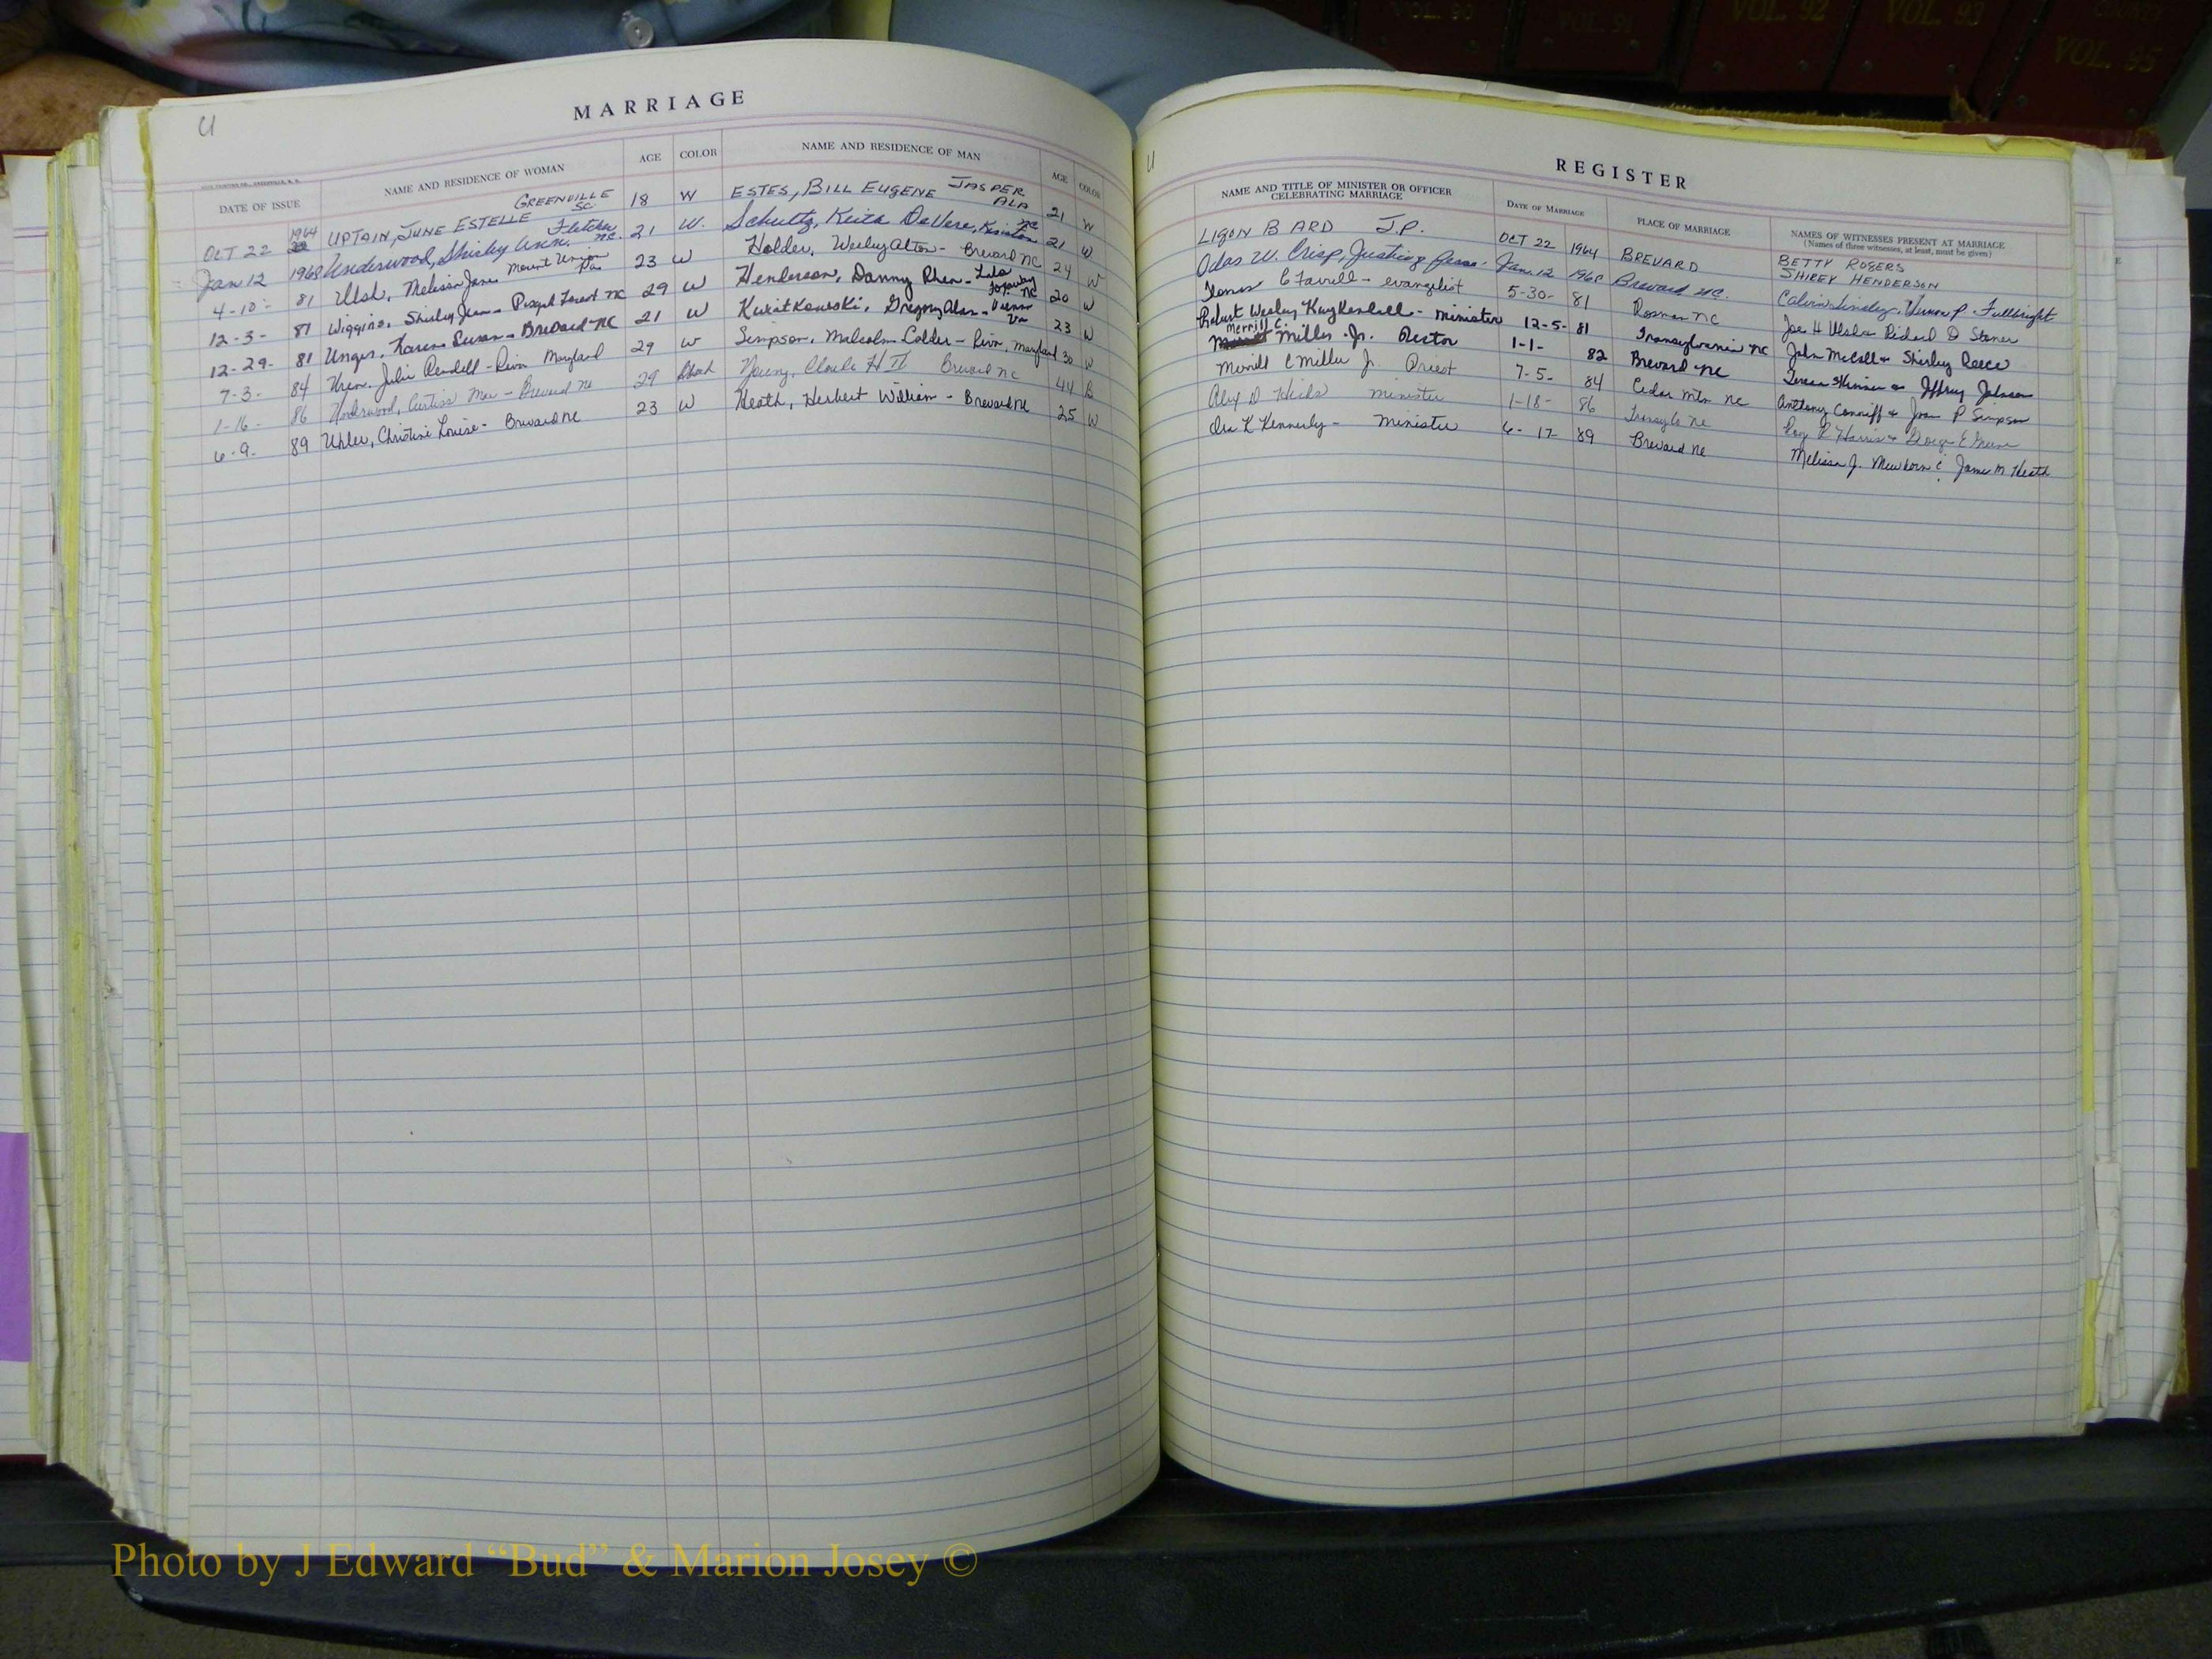 VOL. 90 VOL. 91 VOL. 92 VOL. 93 COUNTY VOL. 95
U
MARRIAGE
DATE OF ISSUE NAME AND RESIDENCE OF WOMAN AGE COLOR NAME AND RESIDENCE OF MAN AGE COLOR
OCT 22 1964 UPTAIN, JUNE ESTELLE GREENVILLE SC 18 W ESTES, BILL EUGENE JASPER ALA 21 W
Jan 12 1968 Underwood, Shirley Ann. Fletcher NC. 21 W. Schultz, Keith DeVere, Kinston NC 21 W
4-10- 81 Ulsh, Melissa Jane Mount Union Pa 23 W Holder, Wesley Alton - Brevard NC 24 W
12-3- 81 Wiggins, Shirley Jean - Pisgah Forest NC 29 W Henderson, Danny Rhen - Lake Toxaway NC 20 W
12-29- 81 Unger, Karen Susan - Brevard NC 21 W Kwiatkowski, Gregory Alan - Vienna Va 23 W
7-3- 84 Uren, Julie Rendell - Maryland 29 W Simpson, Malcolm Calder - Maryland 30 W
1-16- 86 Underwood, Curtiss Mae - Brevard NC 29 Black Young, Claude H II Brevard NC 44 B
6-9- 89 Uhler, Christine Louise - Brevard NC 23 W Heath, Herbert William - Brevard NC 25 W
U
REGISTER
NAME AND TITLE OF MINISTER OR OFFICER CELEBRATING MARRIAGE DATE OF MARRIAGE PLACE OF MARRIAGE NAMES OF WITNESSES PRESENT AT MARRIAGE
(Names of three witnesses, at least, must be given)
LIGON B ARD J.P. OCT 22 1964 BREVARD BETTY ROGERS
SHIREY HENDERSON
Odas W. Crisp, Justice Peace. Jan. 12 1968 Brevard NC.
C Farrell - evangelist 5-30- 81 Rosman NC Calvin Vernon P. Fullbright
Robert Wesley Kuykendall - minister 12-5- 81 Transylvania NC Joe H Ulsh Richard D Stoner
Merrill C. Miller Jr. Rector 1-1- 82 Brevard NC John McCall & Shirley Reece
Merrill C Miller Jr. Priest 7-5- 84 Cedar Mtn NC Teresa Skinner & Jeffrey Johnson
minister 1-18- 86 NC Anthony Conniff & Joan P Simpson
Ora K Kennerly - Minister 6-17 89 Brevard NC Harris & George E Greene
Melissa J. Mewborn & James M Heath
Photo by J Edward “Bud” & Marion Josey ©